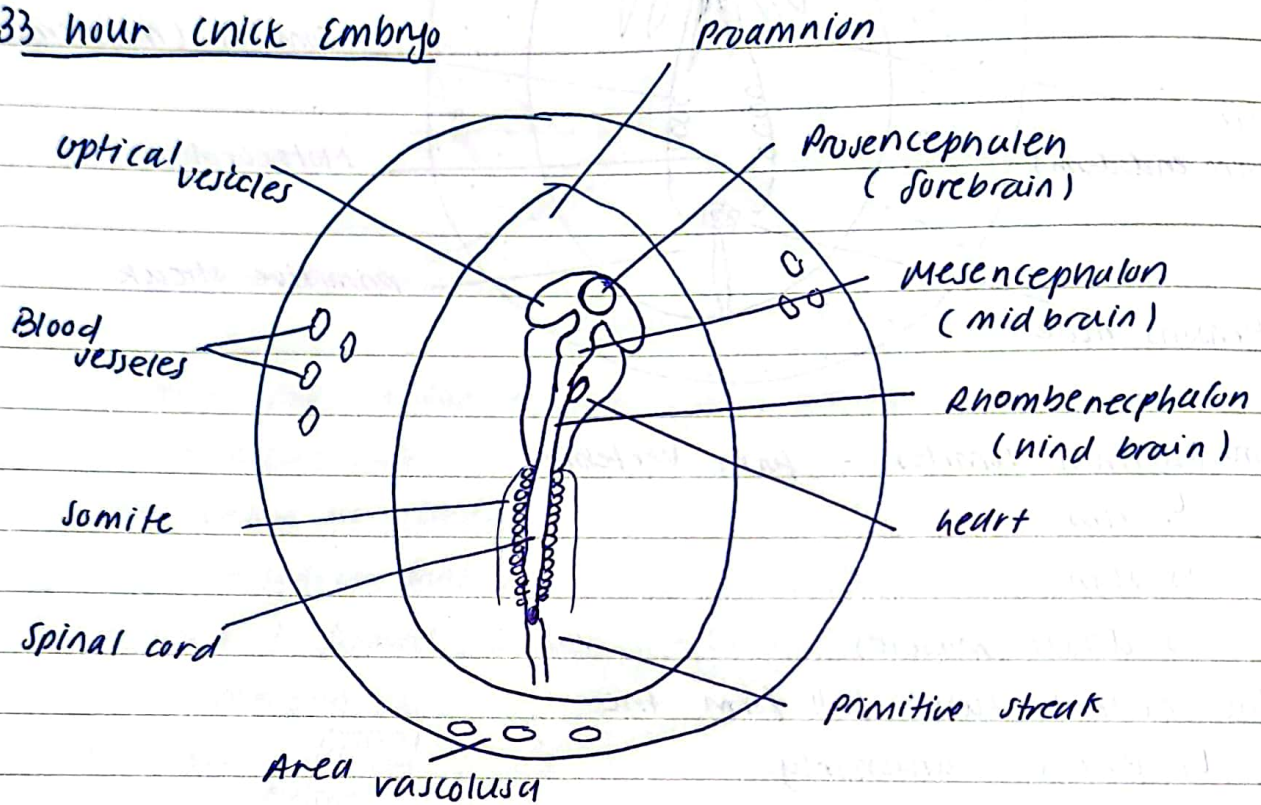 33 hour chick Embryo
Proamnion
optical
vesicles
Prosencephalen
( forebrain)
Mesencephalon
( mid brain)
Blood
vesseles
Rhombenecphalon
(hind brain)
somite
heart
spinal cord
primitive streak
Area
vascolusa